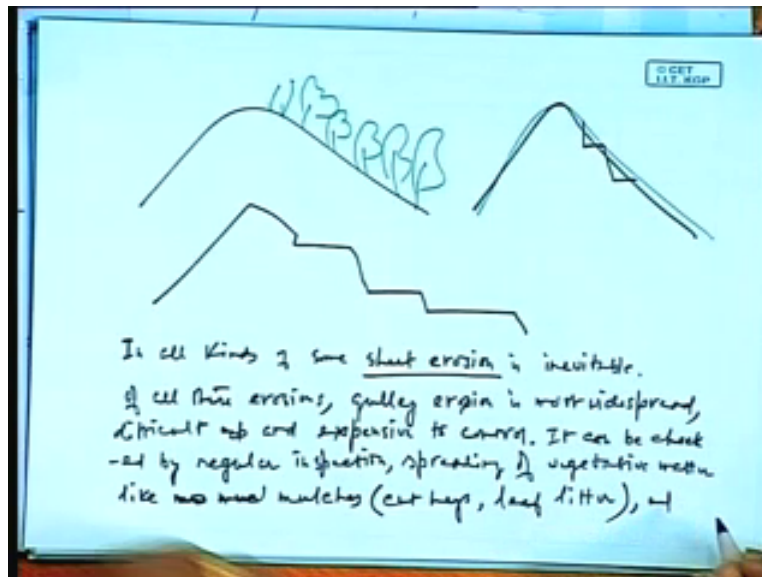 © CET
I.I.T. KGP
In all kinds of some sheet erosion is inevitable.
Of all three erosions, gulley erosion is most widespread,
difficult and expensive to control. It can be check
-ed by regular inspection, spreading of vegetative matter
like mulches (cut hays, leaf litter),